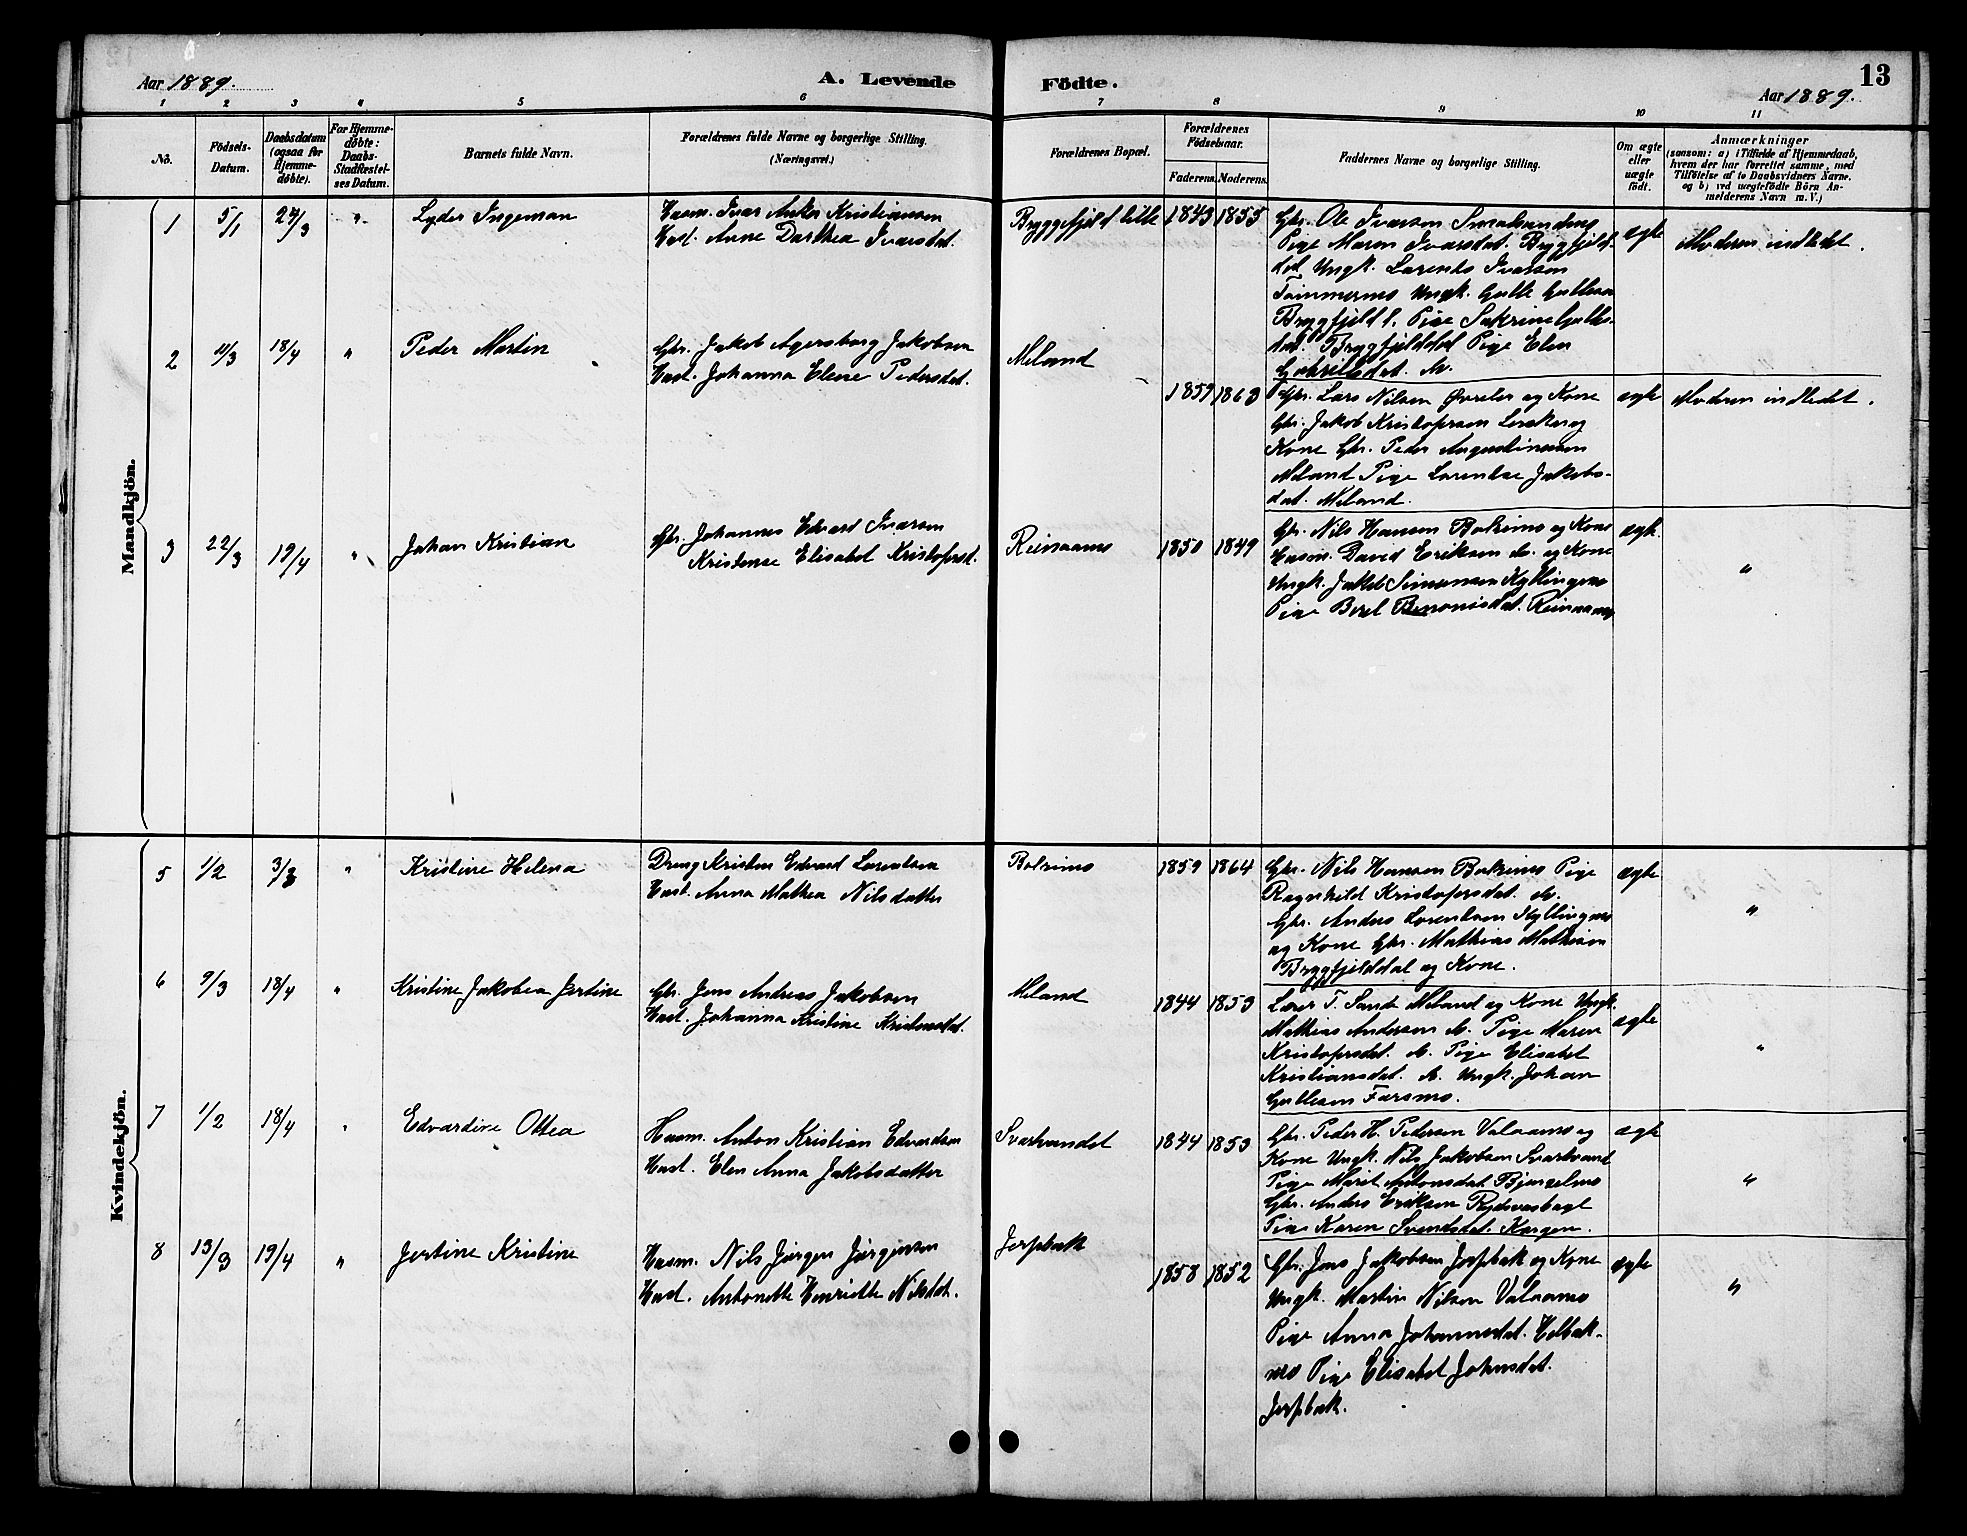 Aar 1889.
A. Levende
Födte.
13
Aar 1889.
1 2 3 4 5 6 7 8 9 10 11
No.
Födsels-
Datum.
Daabsdatum
(ogsaa for
Hjemme-
döbte).
For Hjemme-
döbte:
Daabs-
Stadfæstel-
ses Datum.
Barnets fulde Navn.
Forældrenes fulde Navne og borgerlige Stilling.
(Næringsvei.)
Forældrenes Bopæl.
Forældrenes
Födselsaar.
Faderens. Moderens.
Faddernes Navne og borgerlige Stilling.
Om ægte
eller
uægte
födt.
Anmærkninger
(saasom: a) i Tilfælde af Hjemmedaab,
hvem der har forrettet samme, med
Tilföielse af to Daabsvidners Navne.
og b) ved uægtefödte Börn An-
melderens Navn m. V.)
Mandkjön.
1
5/1
24/3
"
Lyder Ingeman
Husm. Ivar Anker Kristiansen
Hust. Anne Darthea Ivarsdat.
Bryggefjeld lille
1843 1855
Gbr. Ole Ivarson
Pige Maren Ivarsdat. Brygfjeld-
dal Ungk. Larents Ivarson
Tømmernes Ungk. Gulle Gullesen
Brygfjeld l. Pige Sakrine Gulles-
dat. Brygfjelddal Pige Elen
Gabrielsdat. do.
ægte
Moderen indledet.
2
11/3
18/4
"
Peder Martin
Gbr. Jakob Agersborg Jakobsen
Hust. Johanna Elene Pedersdat.
Meland
1859 1863
Gbr. Lars Nilsen Øvreler og Kone
Gbr. Jakob Kristofersen og
Kone Gbr. Peder Augustinussen
Meland Pige Larentse Jakobs-
dat. Meland.
ægte
Moderen indledet.
3
22/3
19/4
"
Johan Kristian
Gbr. Johannes Edvard Ivarsen
Kristense Elisabet Kristofersd.
Reinaamo
1850 1849
Gbr. Nils Hansen Bolrimo og Kone
Husm. David Eriksen do. og Kone
Ungk. Jakob Simonsen Kyllingmo
Pige Berel Benonisdat. Reinaamo
ægte
"
Kvindekjön.
5
1/2
3/3
"
Kristine Helena
Dreng Kristen Edvard Larentsen
Hust. Anna Mathea Nilsdatter
Bolrimo
1859 1864
Gbr. Nils Hansen Bolrimo Pige
Ragnhild Kristofersdat. do.
Gbr. Anders Lorentsen Kyllingmo
og Kone Gbr. Mathias Mathisen
Brygfjelddal og Kone.
ægte
"
6
9/3
18/4
"
Kristine Jakobea Jertine
Gbr. Jens Andreas Jakobsen
Hust. Johanna Kristine Kristensdat.
Meland
1844 1853
Lærer T. Sand Meland og Kone Ungk.
Mathias Andersen do. Pige Maren
Kristofersdat. do. Pige Elisabet
Kristiansdat. do. Ungk. Johan
Gullesen Farsmo.
ægte
"
7
1/2
18/4
"
Edvardine Ottea
Husm. Anton Kristian Edvardsen
Hust. Elen Anna Jakobsdatter
Svartvandet
1844 1853
Gbr. Peder H. Pedersen Valaamo og
Kone Ungk. Nils Jakobsen Svartvand
Pige Marit Antonsdat.
Gbr. Anders Eriksen
Pige Karen Svendsdat.
ægte
"
8
13/3
19/4
"
Jertine Kristine
Husm. Nils Jørgen Jørgensen
Hust. Antonette Henriette Nilsdat.
Jerpbak
1858 1852
Gbr. Jens Jakobsen Jerpbak og Kone
Ungk. Martin Nilsen Valaamo
Pige Anna Johannesdat. Helbak-
mo Pige Elisabet Johnsdat.
Jerpbak.
ægte
"